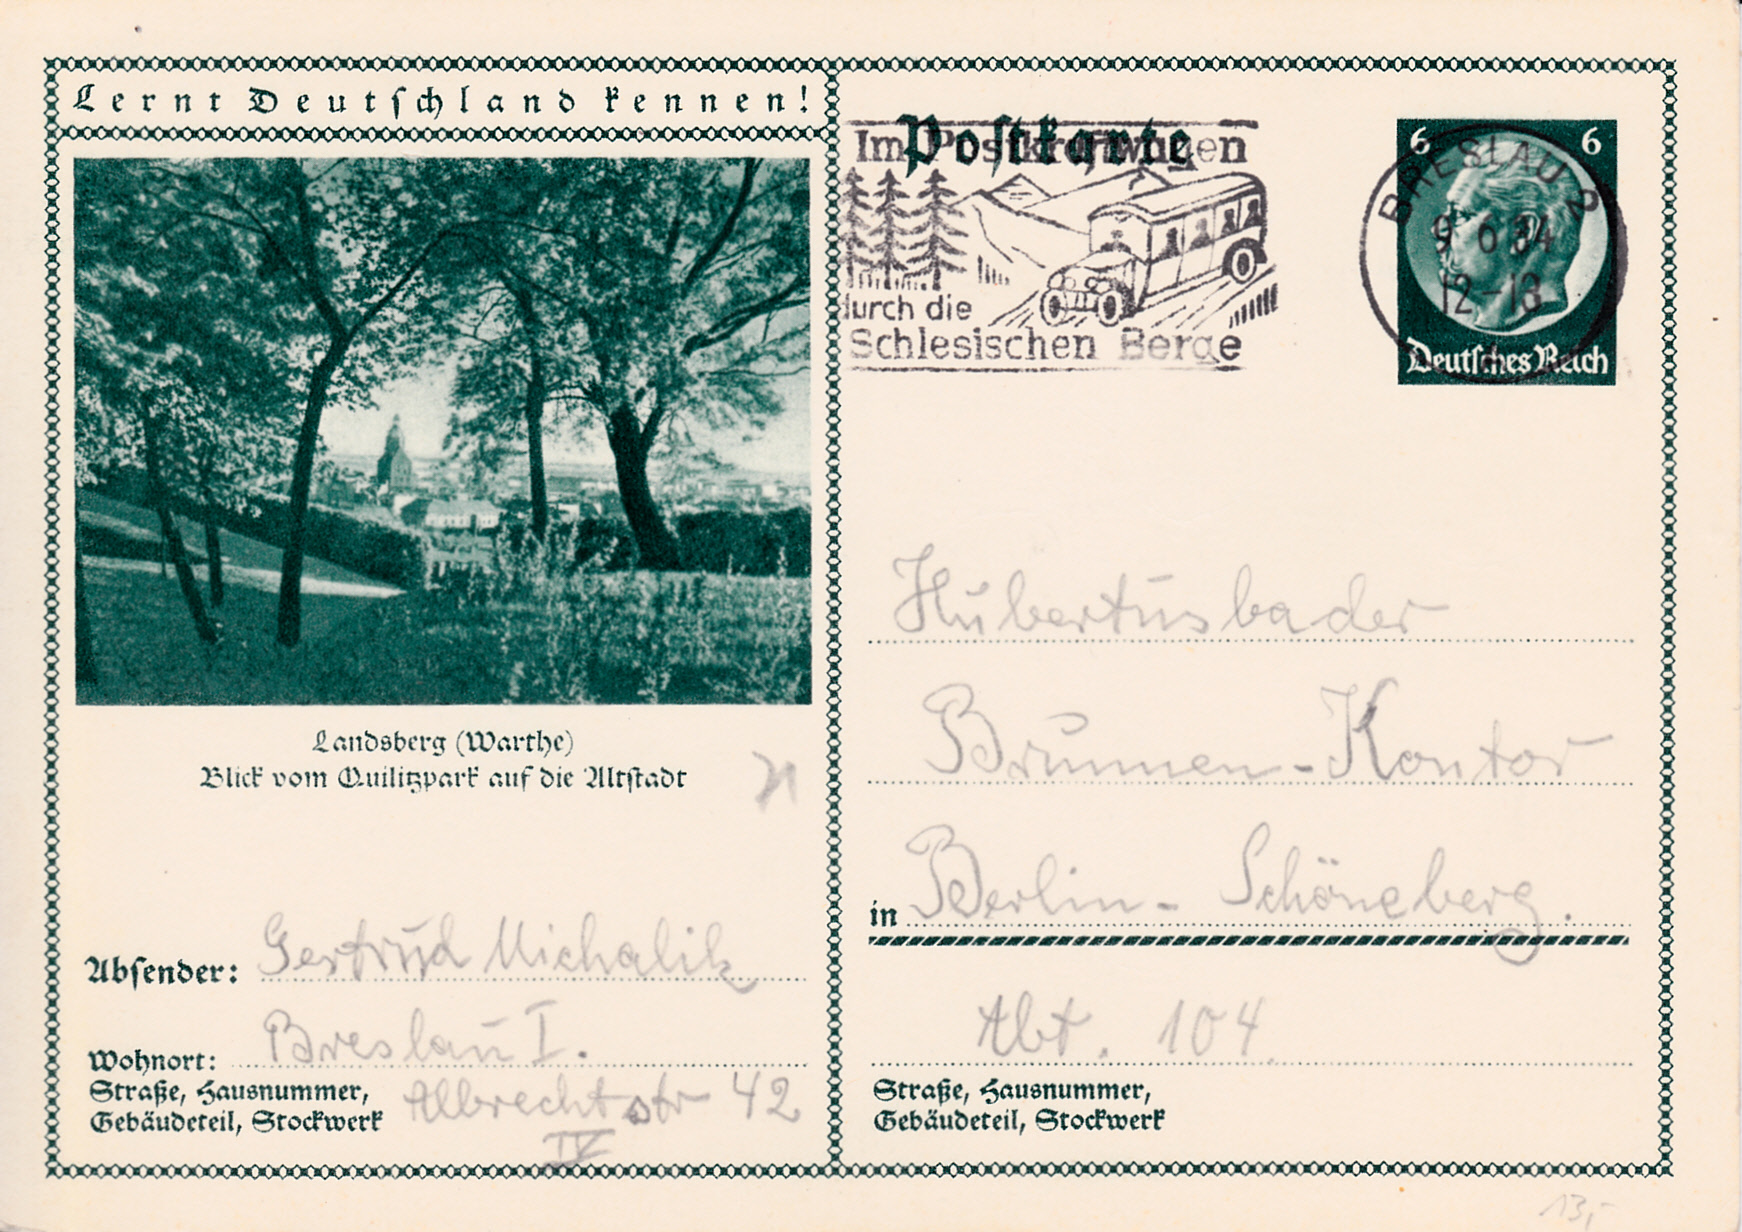 Lernt Deutschland kennen!
Postkarte
Im Postkraftwagen
durch die
Schlesischen Berge
6 6
BRESLAU 2
9 6 34
12-13
Deutsches Reich
Landsberg (Warthe)
Blick vom Quilitzpark auf die Altstadt
Absender: Gertrud Michalik
Wohnort: Breslau I.
Straße, Hausnummer,
Gebäudeteil, Stockwerk
Albrechtstr 42
IV
Hubertusbader
Brunnen-Kontor
in Berlin-Schöneberg.
Abt. 104.
Straße, Hausnummer,
Gebäudeteil, Stockwerk
13,-